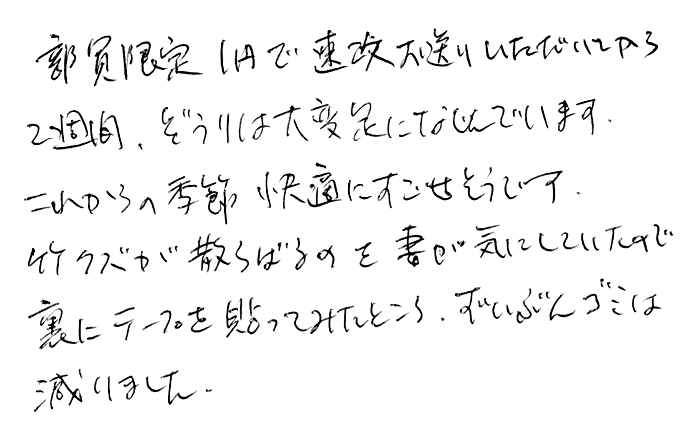 部員限定 1Aで速攻お送りいただいてから
2週間、ぞうりは大変足になじんでいます.
これからの季節 快適にすごせそうです.
竹クズが散らばるのを妻が気にしていたので
裏にテープを貼ってみたところ、ずいぶんゴミは
減りました.